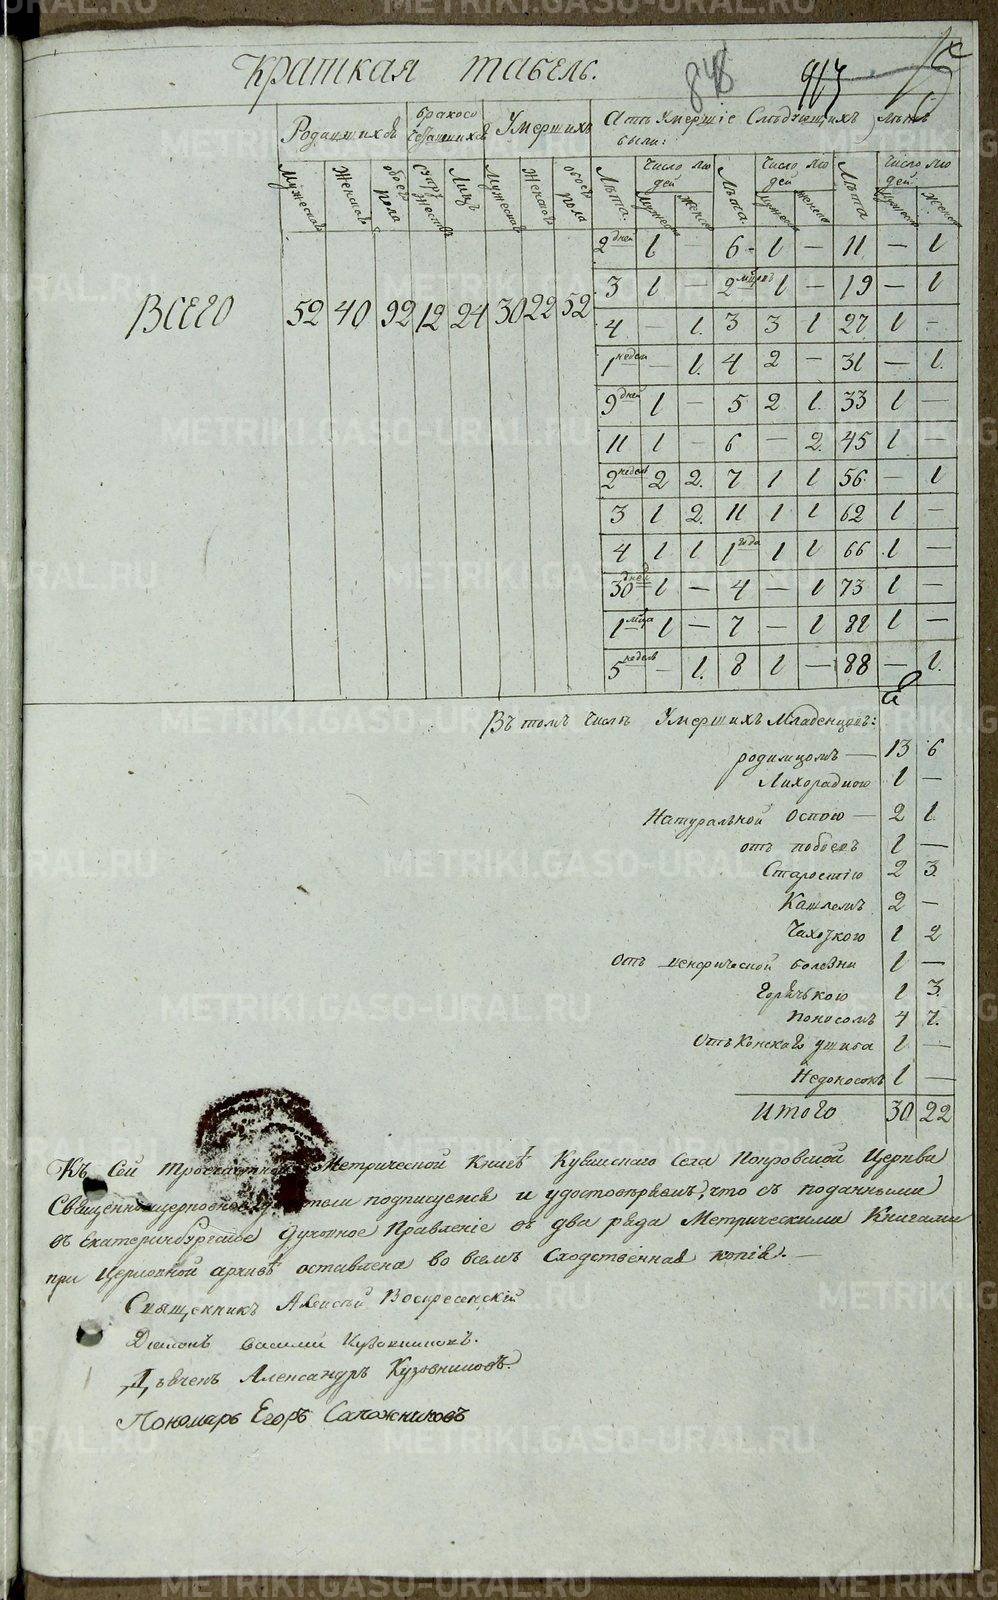 Краткая табель.
848
Родившихся
Умершихъ
А отъ Умершіе Слѣдующихъ лѣтъ были:
Мужеска Женска обоего пола Супружествъ Лицъ Мужеска Женска обоего пола
Лѣта. Число людей Лѣта. Число людей Лѣта Число людей
ВСЕГО 52 40 92 12 24 30 22 52
2 дней 1 — 6 1 — 11 — 1
3 1 — 2 мцовъ 1 — 19 — 1
4 — 1 3 3 1 27 1 —
1 недели — 1 4 2 — 31 — 1
9 дней 1 — 5 2 1 33 1 —
11 1 — 6 — 2 45 1 —
2 недель 2 2 7 1 1 56 — 1
3 1 2 11 1 1 62 1 —
4 1 1 1 года 1 1 66 1 —
30 дней 1 — 4 — 1 73 1 —
1 мца 1 — 7 — 1 1 —
5 недель — 1 8 1 — 88 — 1
Въ томъ числѣ Умершихъ Младенцовъ:
родимцомъ — 13 6
Лихорадкою 1 —
Натуральной Оспою — 2 1
отъ побоевъ 1 —
Старостію 2 3
Кашлемъ 2 —
Чахоткою 1 2
Отъ венерической болезни 1 —
Горячкою 1 3
Поносомъ 4 7
Отъ Конскаго ушиба 1 —
Недоносокъ 1 —
Итого 30 22
Къ Сей Метрической Книгѣ Кувинскаго Села Покровской Церкви
подписуемся и удостовѣряемъ, что съ поданными
въ Екатеринбургское Духовное Правленіе въ два ряда Метрическими Книгами
при Церковной архивѣ оставлена во всемъ Сходственная копія. —
Священникъ Алексѣй Воскресенскій
Діаконъ Василій Кузовниковъ.
Дьячекъ Александръ Кузовниковъ.
Пономарь Егоръ Сапожниковъ
METRIKI.GASO-URAL.RU